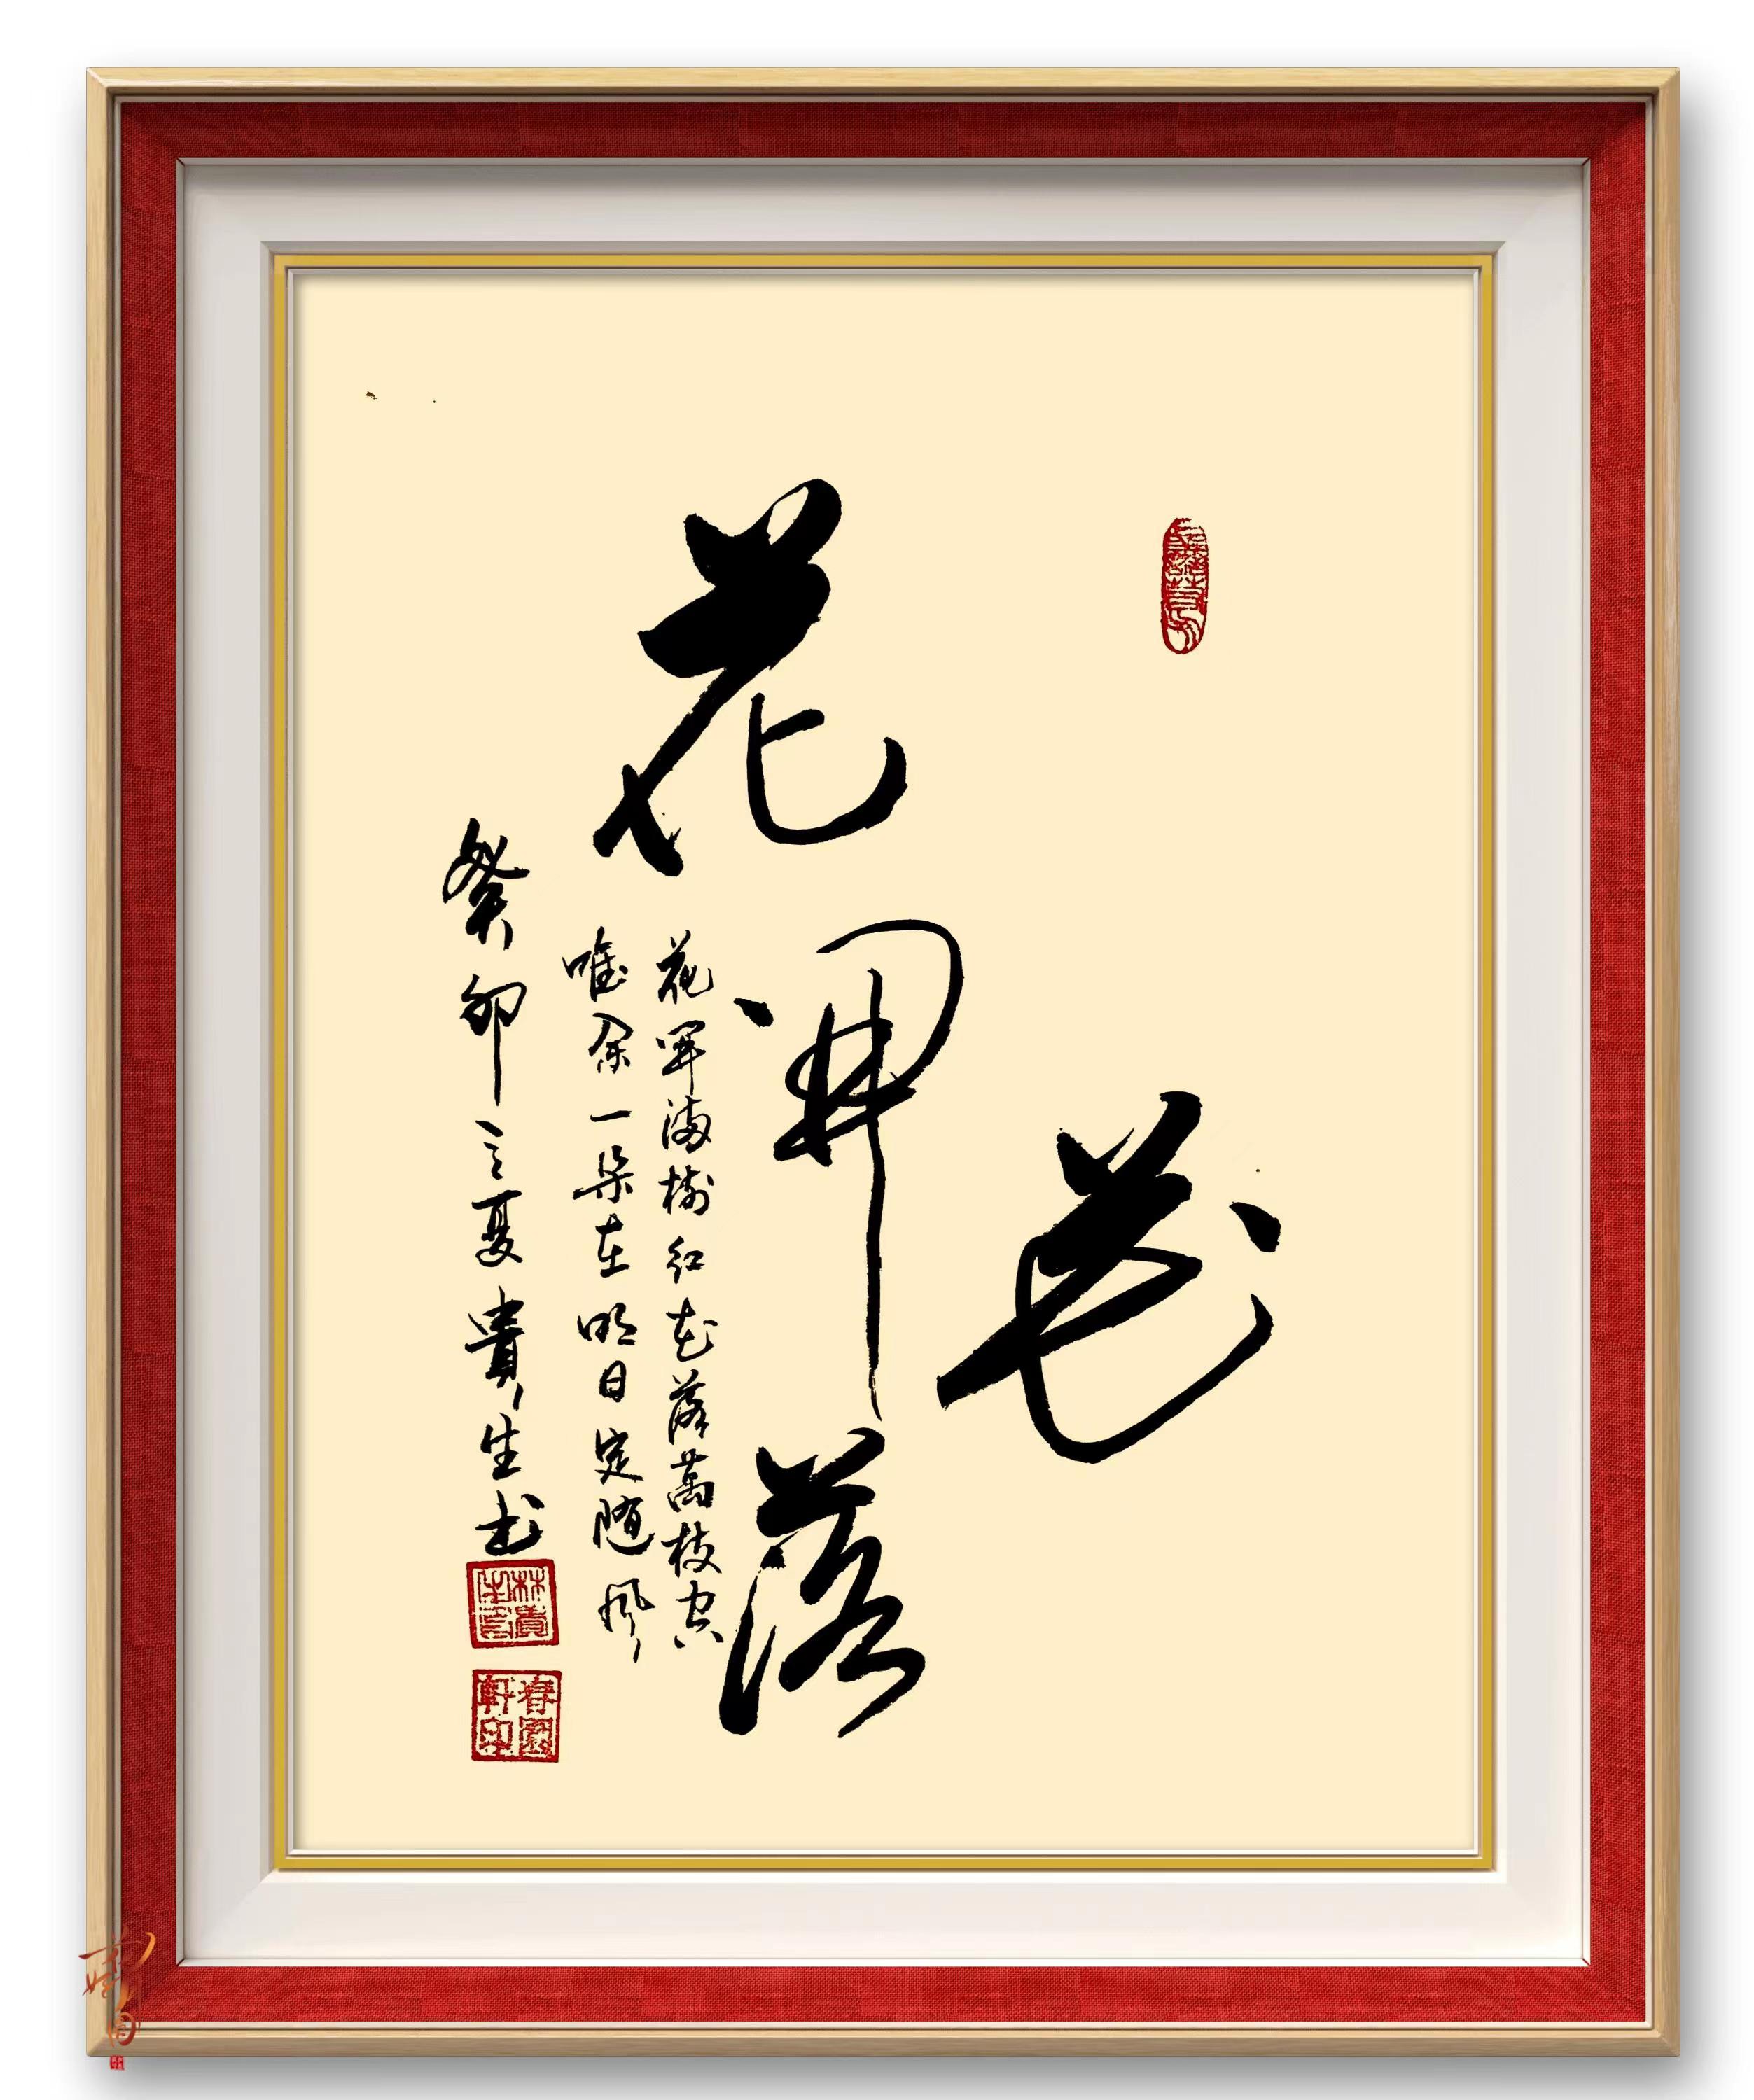 花
開花落
花開滿樹紅花落萬枝空
唯余一朵在明日定随風
癸卯立夏貴生书
林貴生言
春園軒印